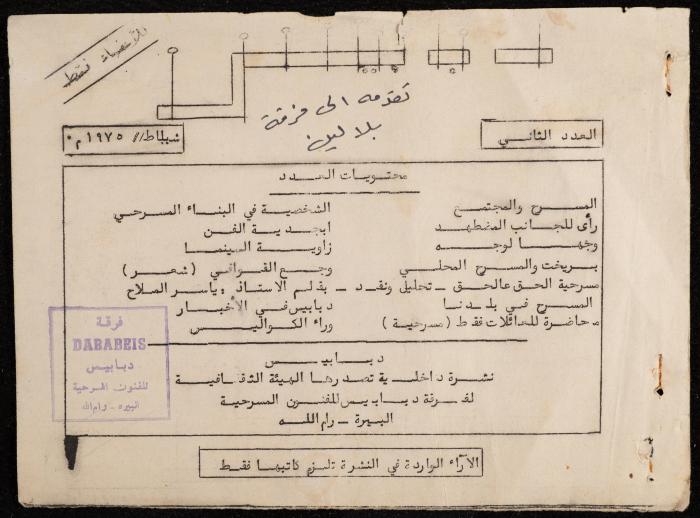 للأعضاء فقط
تقدمه الى فرقة
بلالين
العدد الثاني
شباط // ١٩٧٥ م٠
محتويات العدد
المسرح والمجتمع
رأى للجانب المضطهد
وجها لوجه
بريخت والمسرح المحلي
مسرحية الحق عالحق ـ تحليل ونقد ـ بقلم الاستاذ : ياسر الملاح
المسرح في بلدنا
محاضرة للعائلات فقط ( مسرحية )
الشخصية في البناء المسرحي
ابجدية الفن
زاوية السينما
وجع القوافي ( شعر )
دبابيس في الأخبار
وراء الكواليس
دبابيس
نشرة داخلية تصدرها الهيئة الثقافية
لفرقة دبابيس للفنون المسرحية
البيرة ـ رام الله
فرقة
DABABEIS
دبابيس
للفنون المسرحية
البيره ـ رام الله
الآراء الواردة في النشرة تلزم كاتبها فقط